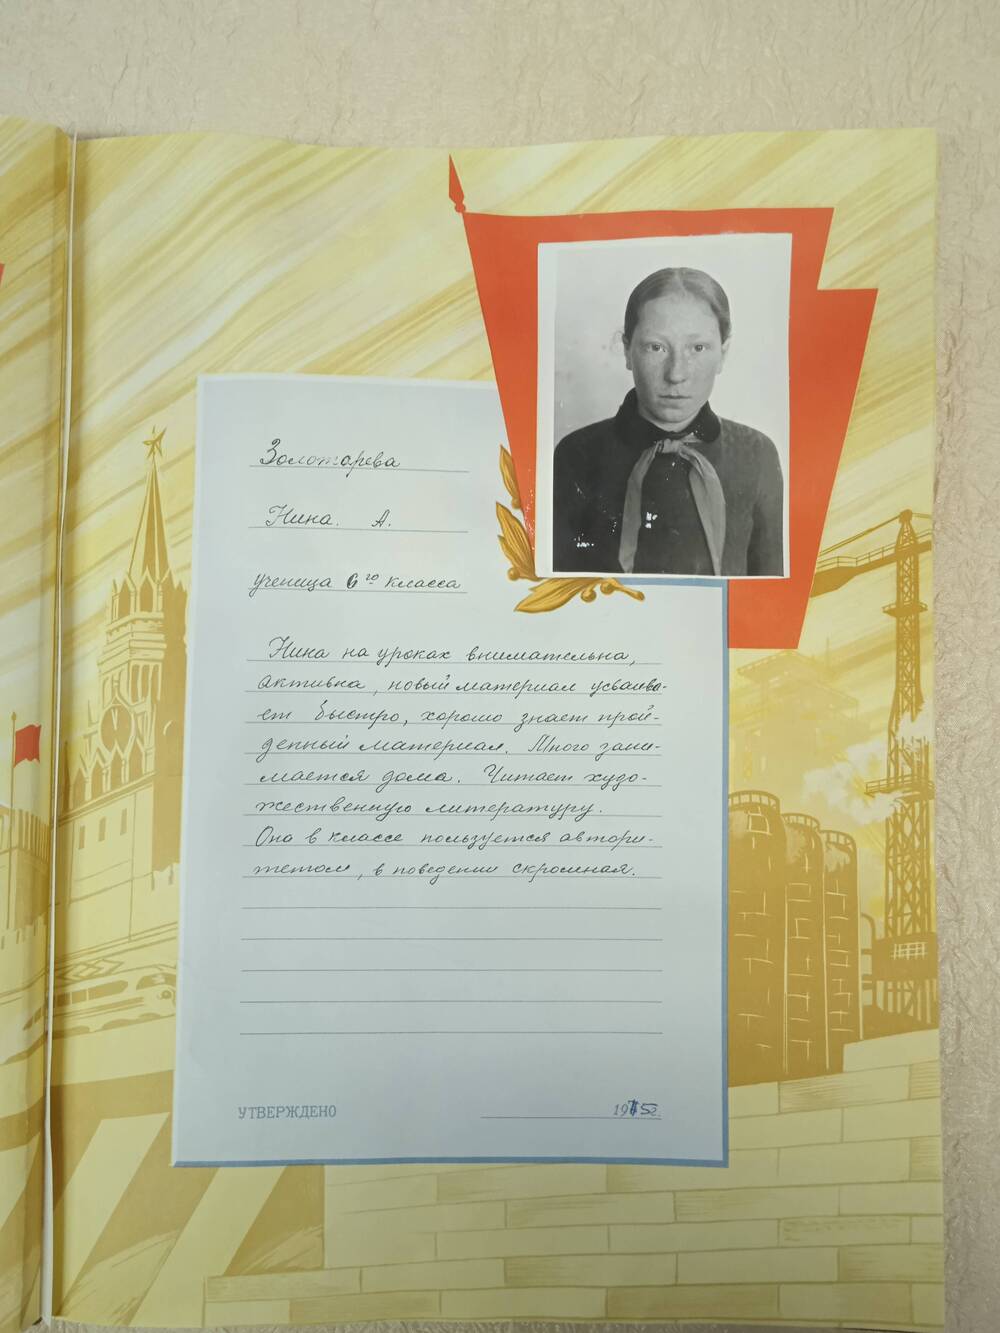 Золотарева
Нина. А.
ученица 6го класса
Нина на уроках внимательна,
активна, новый материал усваива-
ет быстро, хорошо знает прой-
денный материал. Много зани-
мается дома. Читает худо-
жественную литературу.
Она в классе пользуется автори-
тетом, в поведении скромная.
УТВЕРЖДЕНО
1975г.